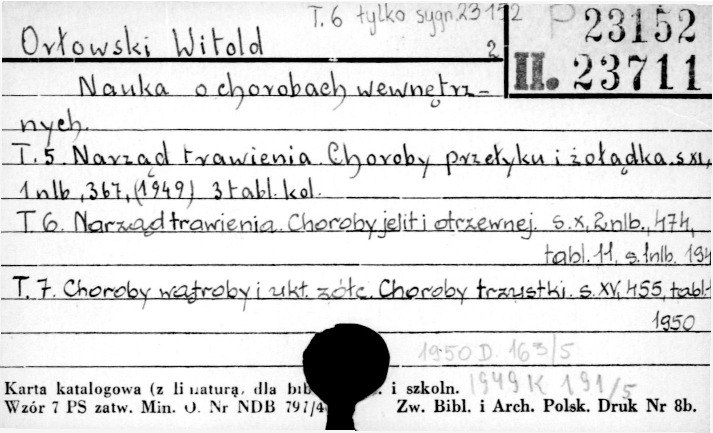 T. 6 tylko sygn. 23152
P 23152
Orłowski Witold 2
II. 23711
Nauka o chorobach wewnętrz-
nych.
T. 5. Narząd trawienia. Choroby przełyku i żołądka. s. XI,
1 nlb., 367, (1949) 3 tabl. kol.
T 6. Narząd trawienia. Choroby jelit i otrzewnej. s. X, 2 nlb., 474,
tabl. 11, s. 1 nlb. 194
T. 7. Choroby wątroby i ukł. żółc. Choroby trzustki. s. XV, 455, tabl.
1950
1950 D. 163/5
1949 K 191/5
Karta katalogowa (z li naturą, dla bib . i szkoln.
Wzór 7 PS zatw. Min. O. Nr NDB 797/4 Zw. Bibl. i Arch. Polsk. Druk Nr 8b.